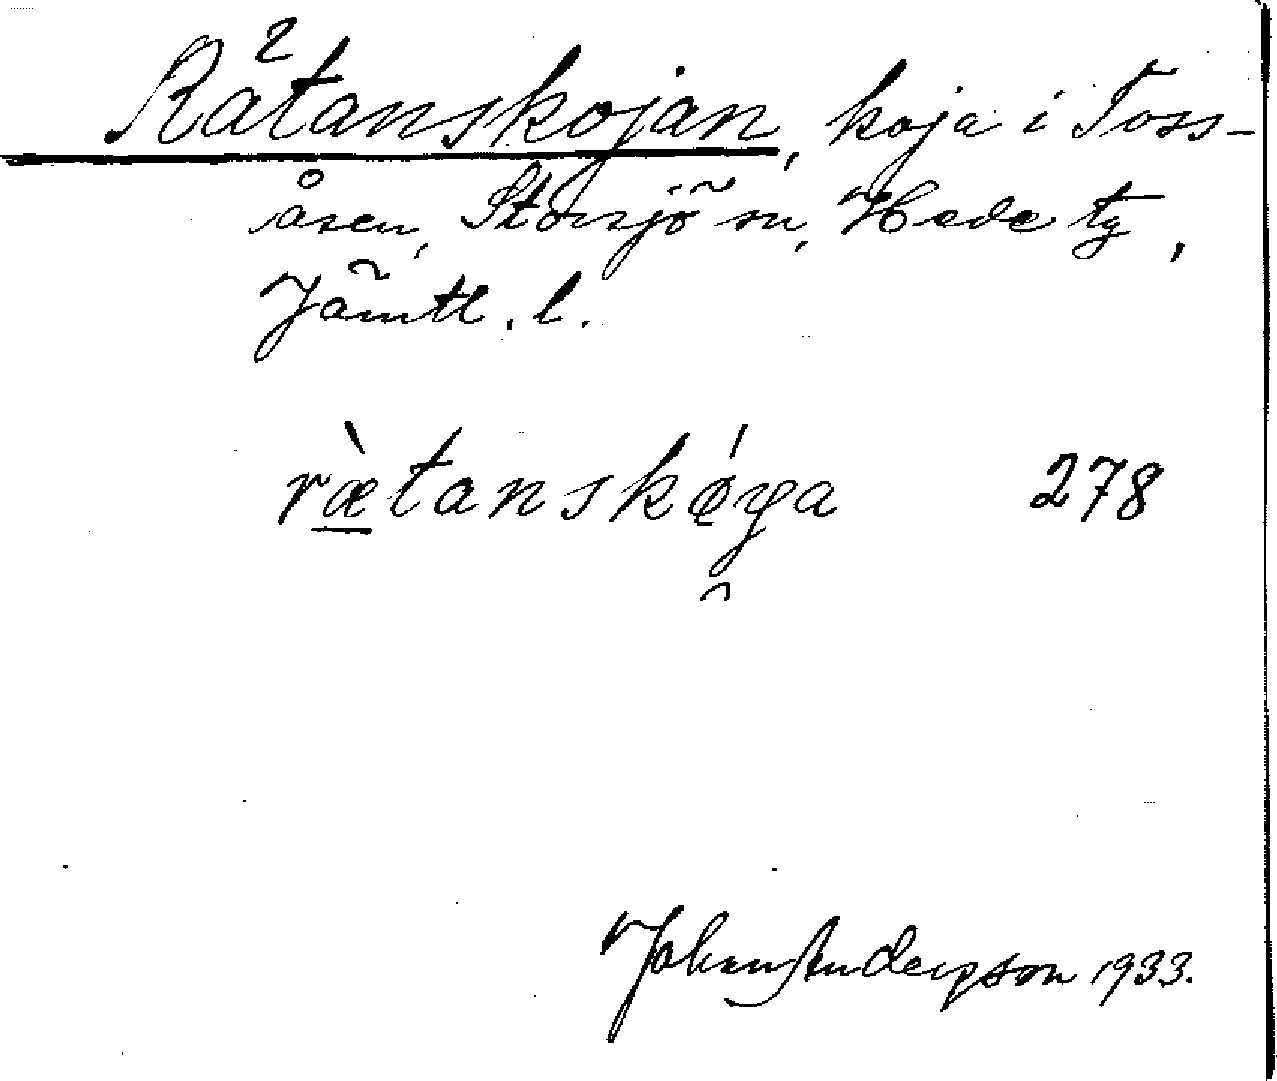 Rätanskojan, koja i Toss-
åsen, Storsjö sn, Hede tg,
Jämtl. l.
rætanskǿya 278
Johan Anderpson 1933.